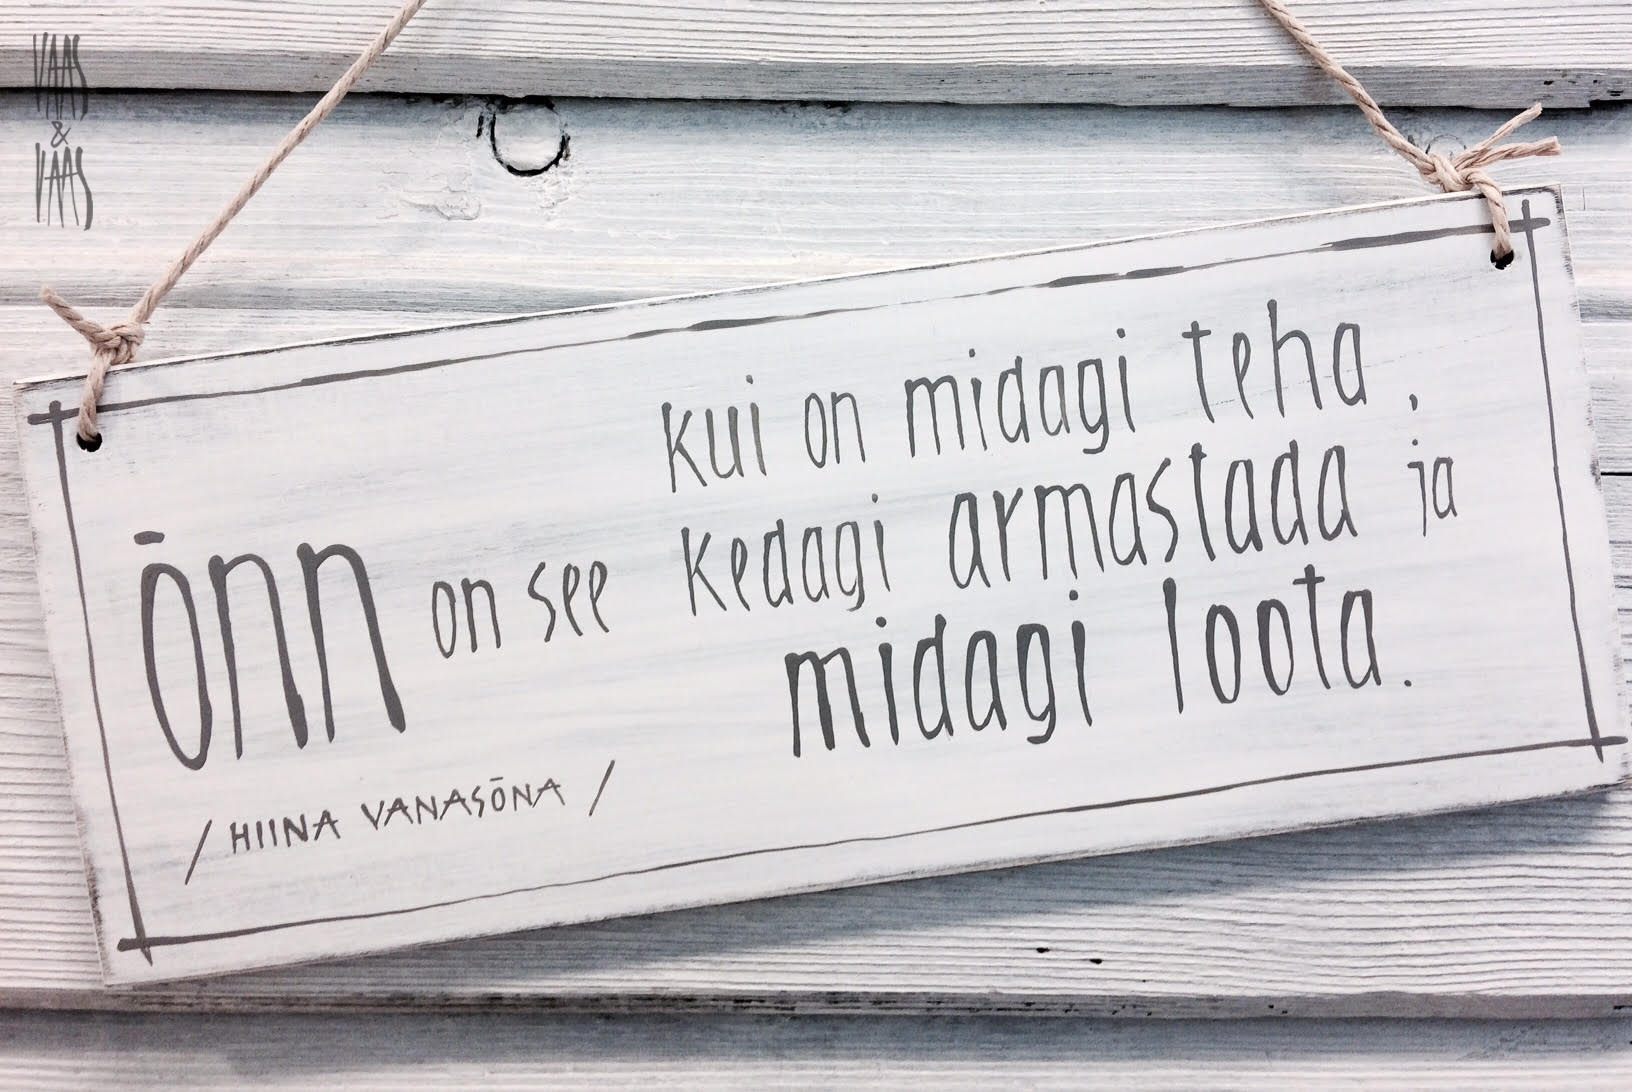 VAAS
&
VAAS
kui on midagi teha,
õnn on see kedagi armastada ja
midagi loota.
/HIINA VANASÕNA/